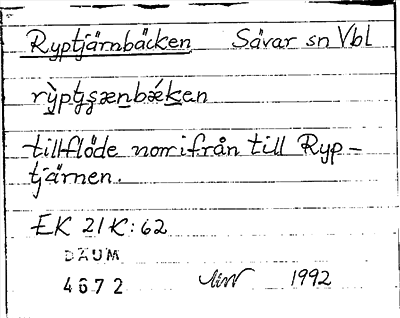 Ryptjärnbäcken Sävar sn Vbl
tillflöde norrifrån till Ryp-
tjärnen.
EK 21K:62
DAUM
4672 1992